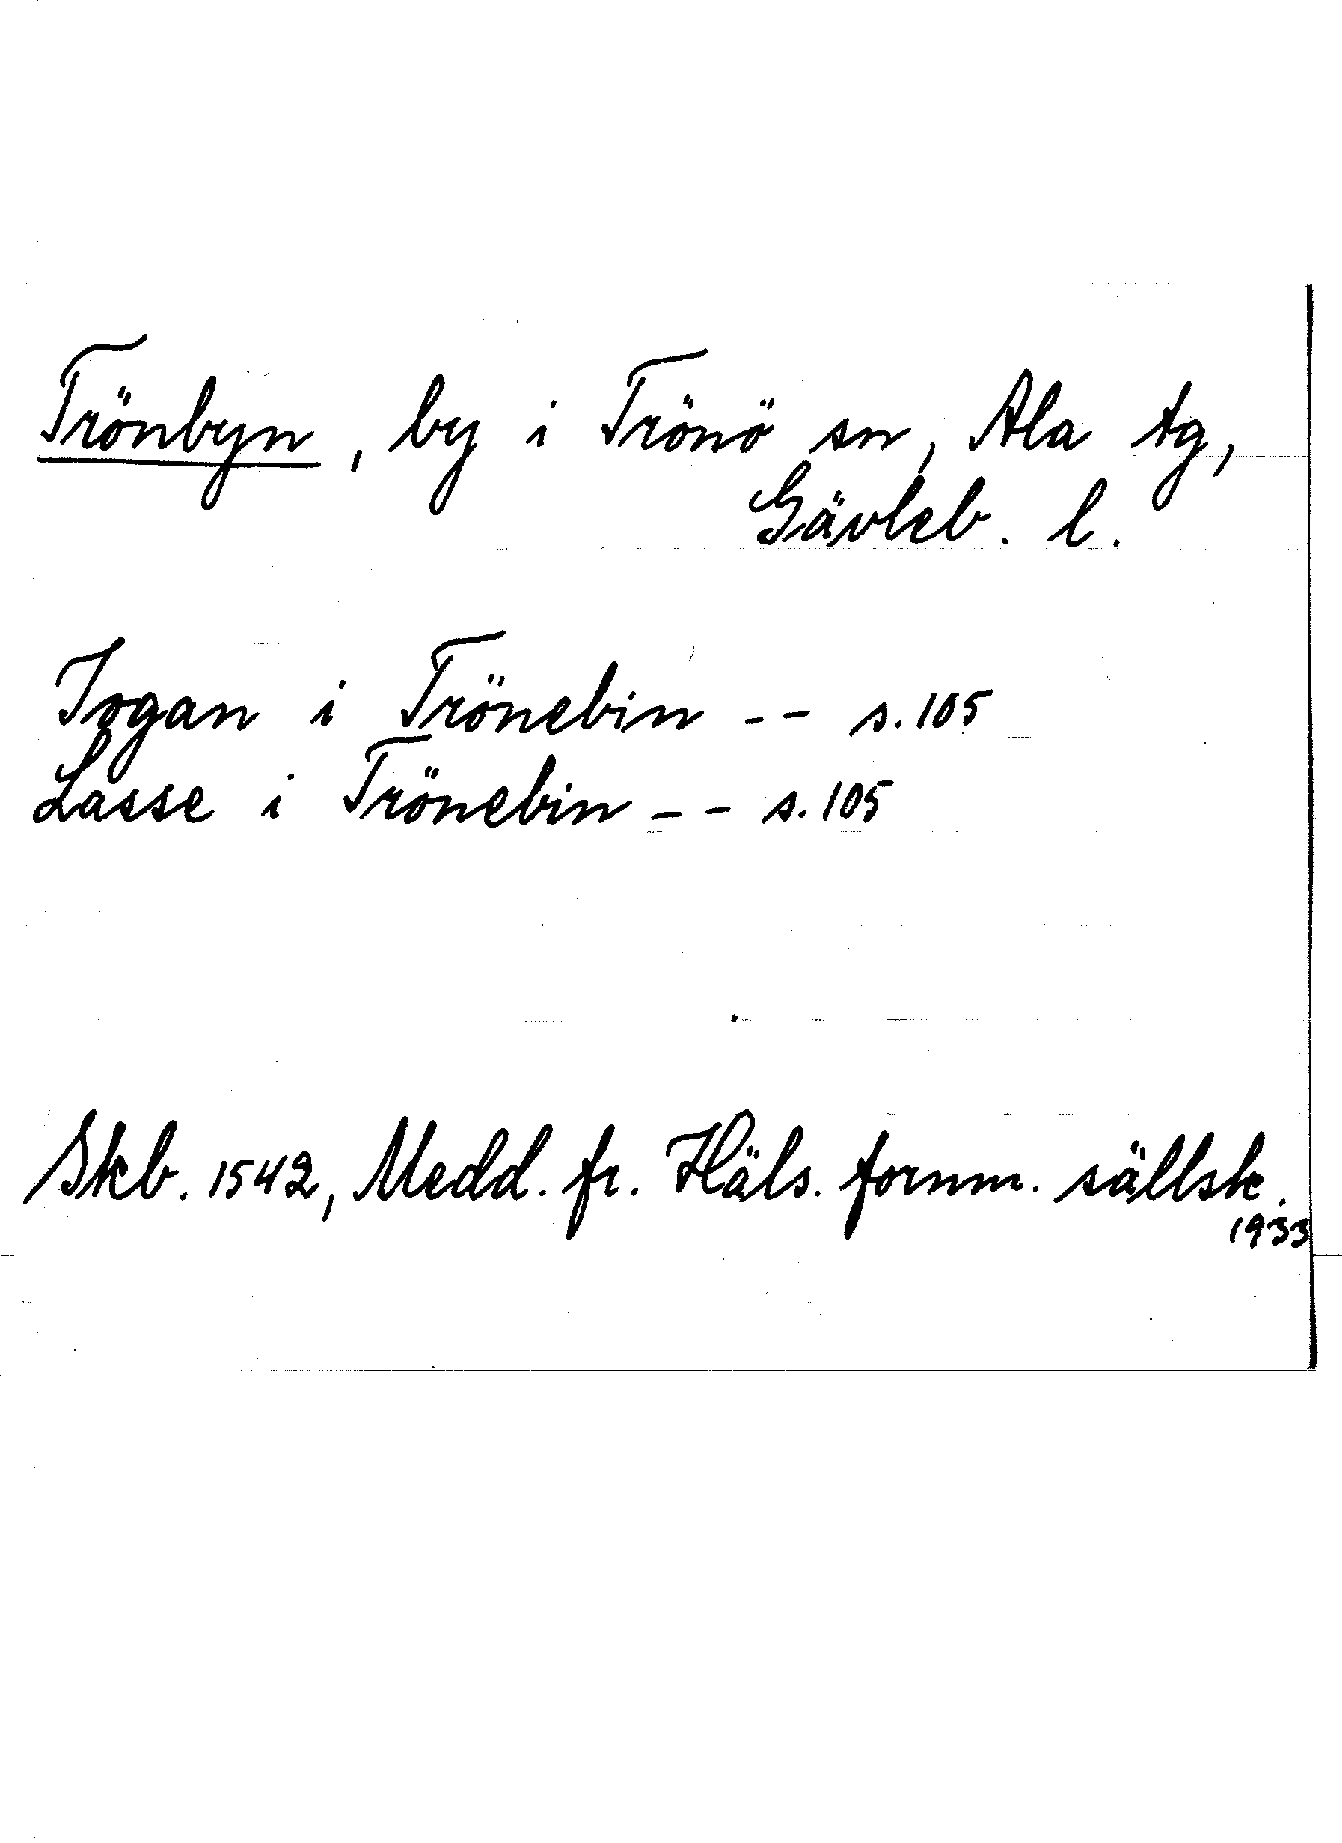 Trönbyn, by i Trönö sn, Ala tg,
Gävleb. l.
Jogan i Trönebin -- s. 105
Lasse i Trönebin -- s. 105
Skb. 1542, Medd. fr. Häls. fornm. sällsk.
1933